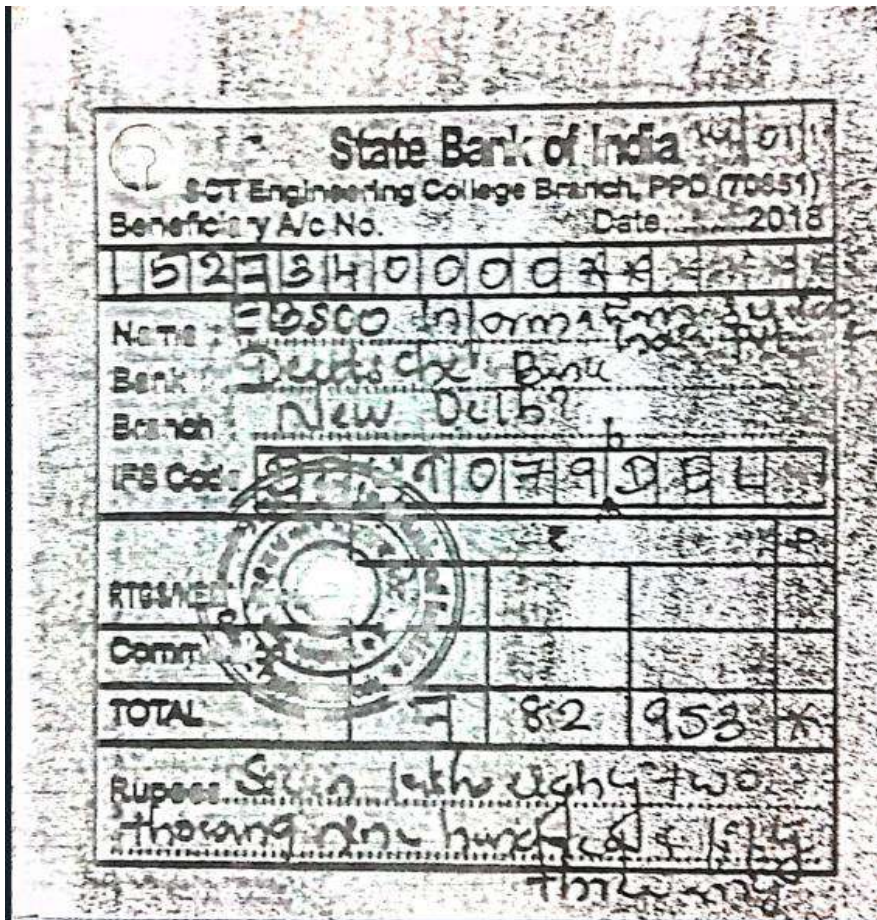 State Bank of India 14 01
SCT Engineering College Branch, PPD (70351)
Beneficiary A/c No. Date 2018
5 2 7 3 4 0 0 0 0 * *
Name EBSCO Information India Pvt
Bank Deutsche Bank
Branch New Delhi
IFS Code 0 7 9 D E L
₹ P
RTGS/NEFT
TOTAL 7 82 953 *
Rupees Seven lakh eighty two
thousand nine hundred & fifty
three only